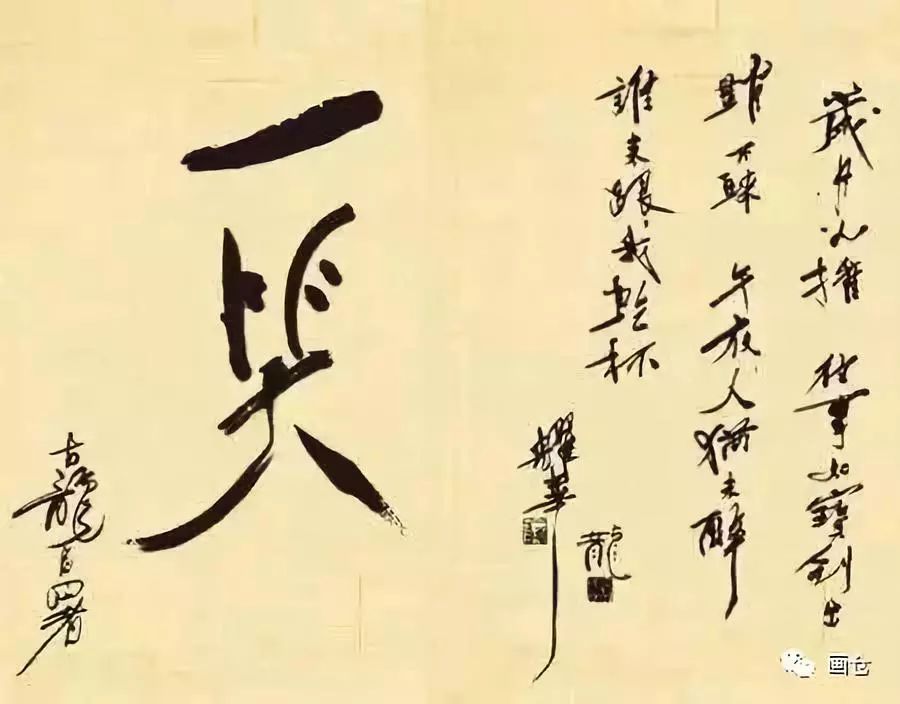 歲月
往事如寶劍出
鞘不 午夜人猶未醉
誰來跟我乾杯
耀華
龍
一笑
古龍自署
画仓